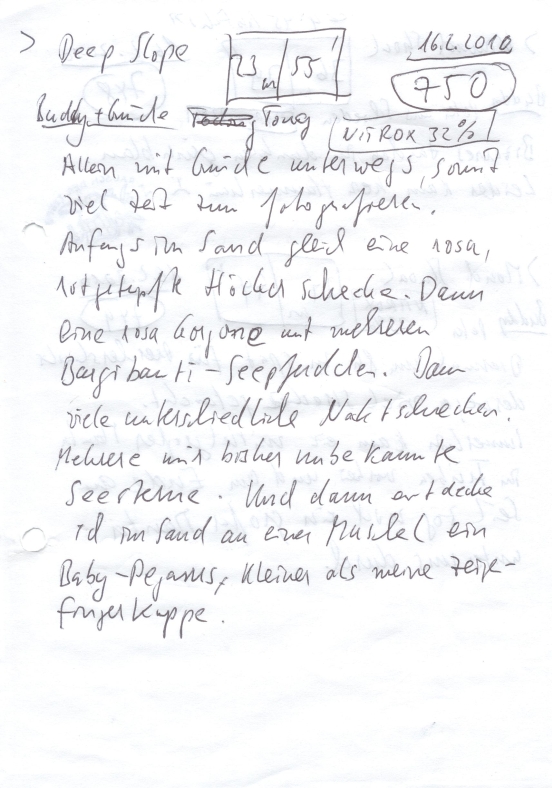 > Deep Slope 23 m / 55' 16.2.2010
750
Buddy + Guide Tony
NITROX 32%
Allein mit Guide unterwegs, somit
viel Zeit zum fotografieren.
Anfangs im Sand gleich eine rosa,
rotgetupfte Höckerschnecke. Dann
eine rosa Gorgonie mit mehreren
Bargibanti-Seepferdchen. Dann
viele unterschiedliche Nacktschnecken.
Mehrere mir bisher unbekannte
Seesterne. Und dann entdecke
ich im Sand an einer Muschel ein
Baby-Pegasus, kleiner als meine Zeige-
fingerkuppe.